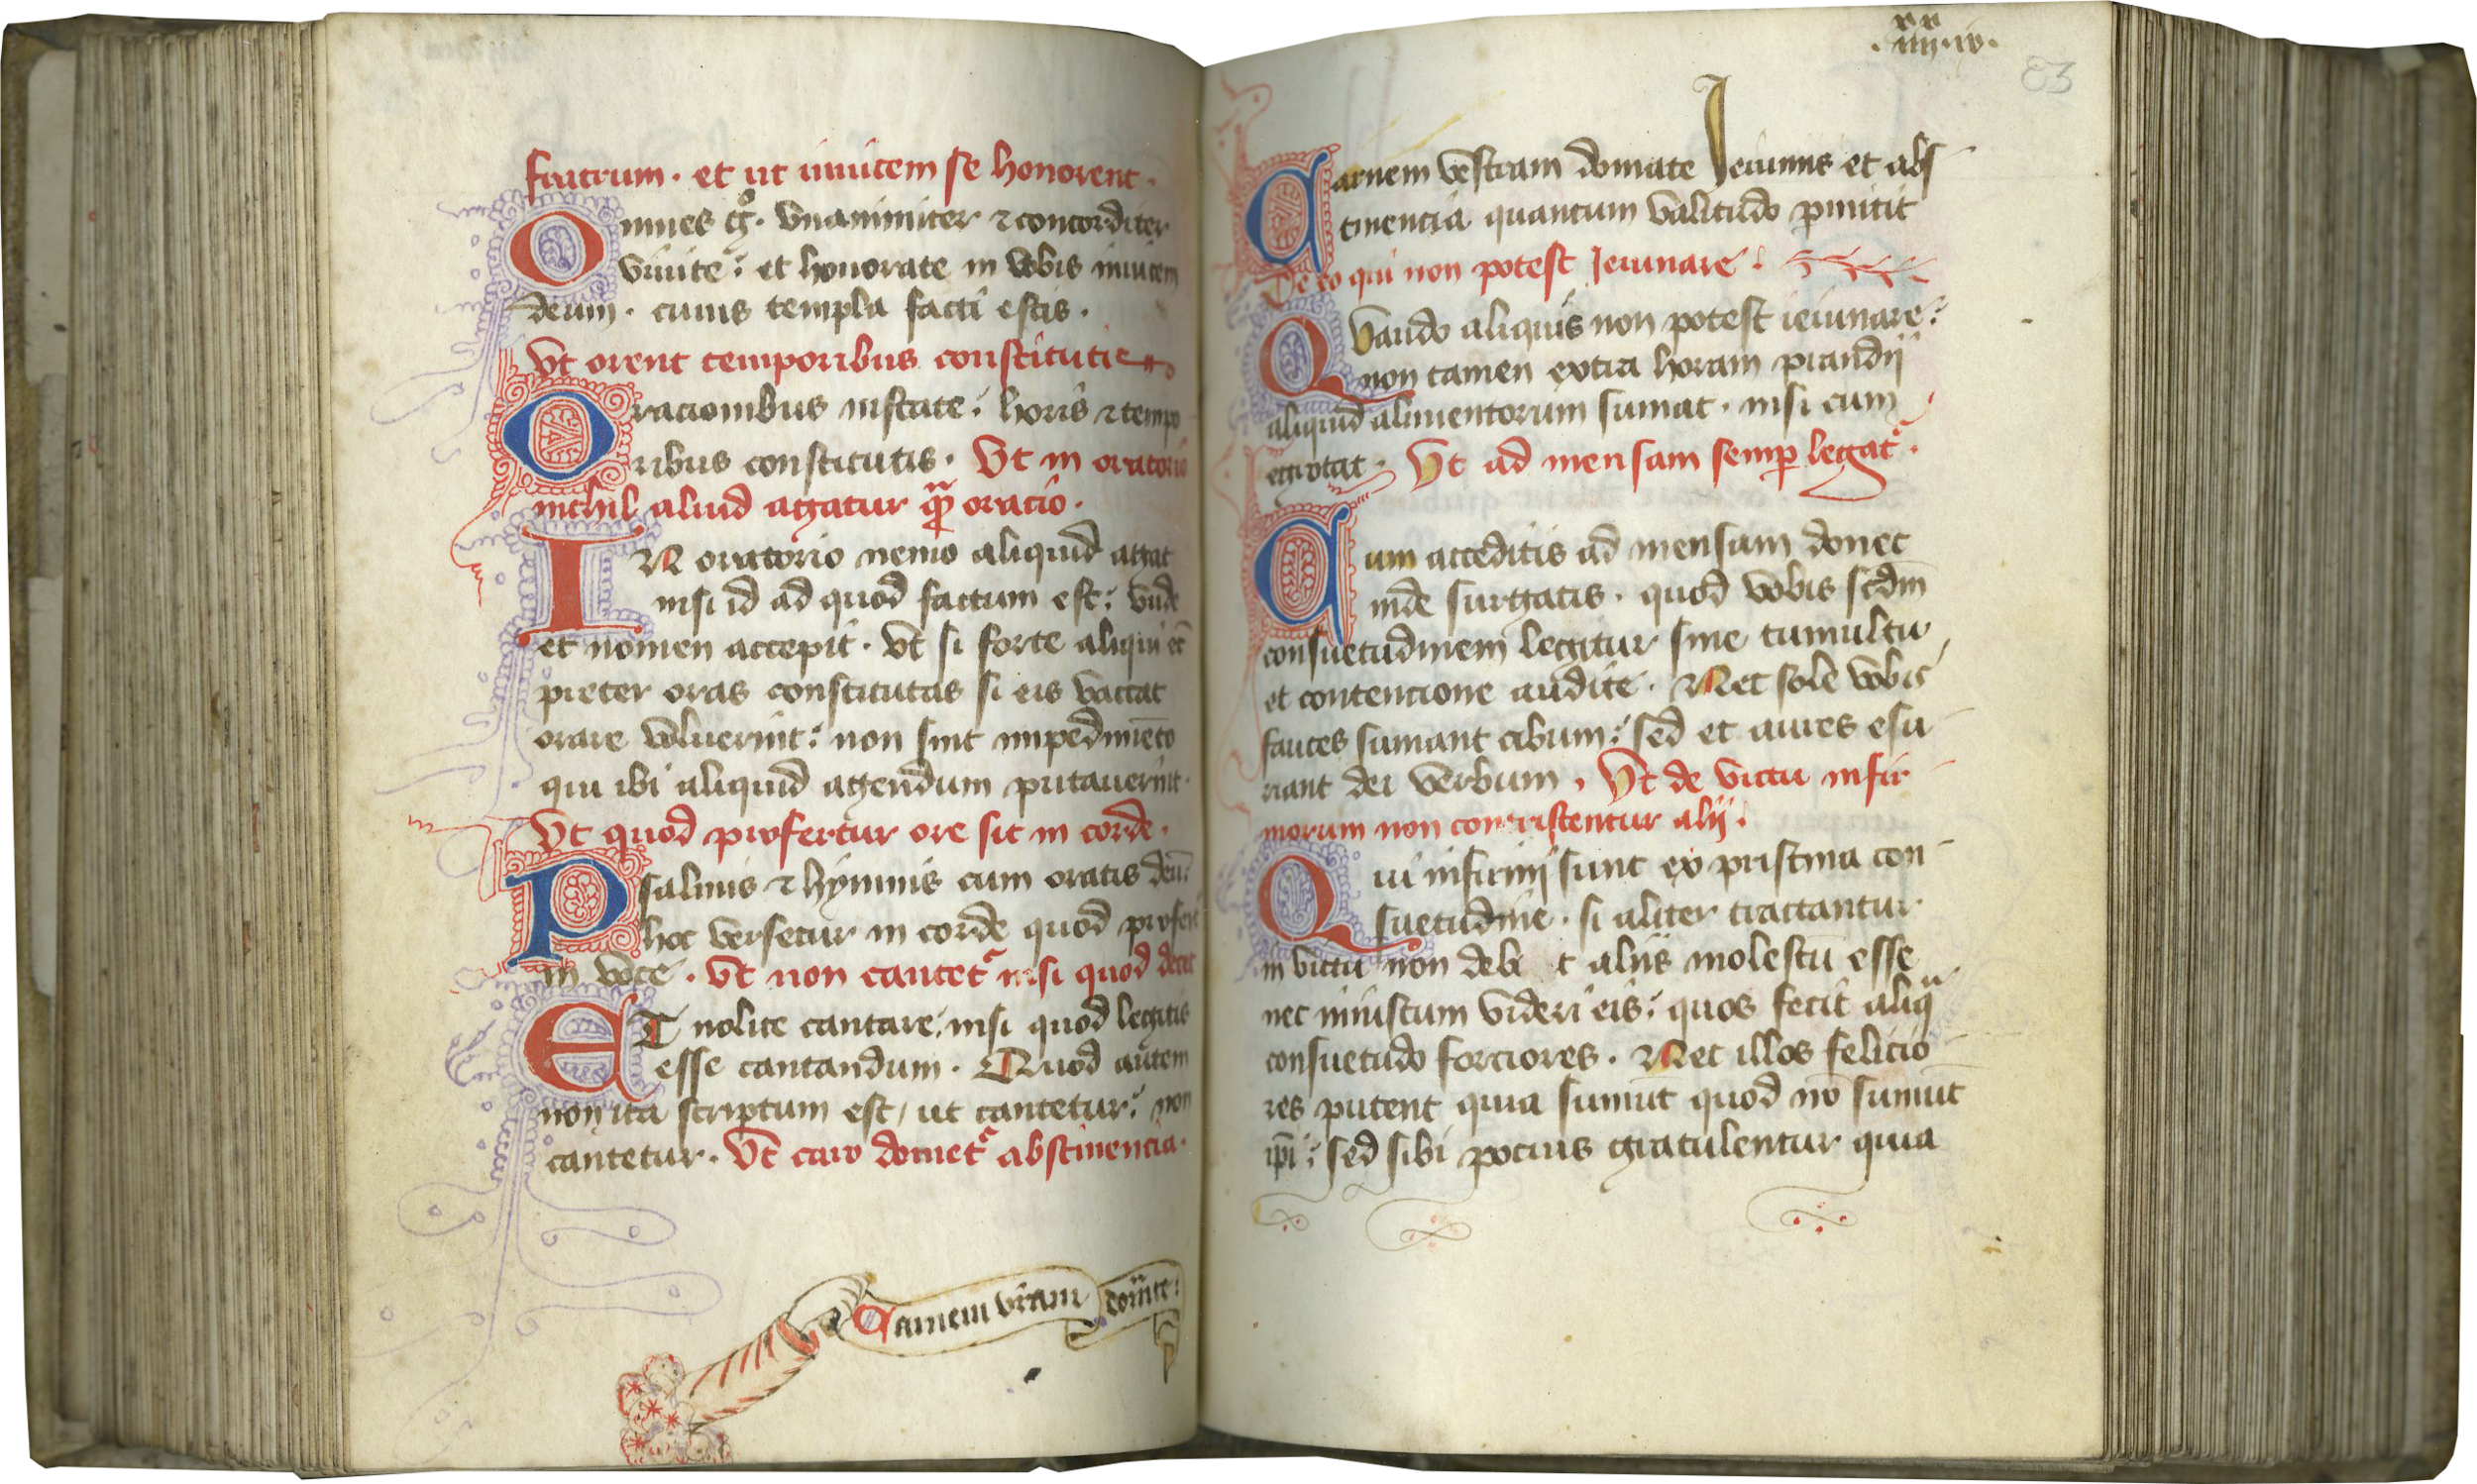 fratrum · et ut inuicem se honorent ·
Omnes gͦ · vnanimiter ⁊ concorditer
viuite : et honorate in vobis inuicem
deum · cuius templa facti estis ·
Vt orent temporibus constitutis
Oracionibus instate : horis ⁊ tempo
ribus constitutis · Vt in oratorio
nichil aliud agatur qᷓm oracio ·
IN oratorio nemo aliquid agat
nisi id ad quod factum est : vnde
et nomen accepit · vt si forte aliqui et̄
preter oras constitutas si eis vaccat
orare voluerint : non sint impedimēto
qui ibi aliquid agendum putauerint ·
Vt quod profertur ore sit in corde ·
Psalmis ⁊ hymnis cum oratis deū :
hoc versetur in corde quod profert̛
in voce · Vt non cantet᷑ nisi quod decet
ET nolite cantare : nisi quod legitis
esse cantandum · Quod autem
non ita scriptum est / ut cantetur : non
cantetur · Vt caro domet᷑ abstinencia ·
Carnem vr̄am domīte :
xx xx
· iiij · iv ·
83
Carnem vestram domate Ieiuniis et abs
tinencia quantum valitudo ꝑmittit
De eo qui non potest Ieiunare :
Quando aliquis non potest ieiunare :
non tamen extra horam prandij
aliquid alimentorum sumat · nisi cum
egrotat · Vt ad mensam semꝑ legat᷑ ·
Cum acceditis ad mensam donec
inde surgatis · quod vobis scdm̄
consuetudinem legitur sine tumultu
et contencione audite · Nec sole vobis
fauces sumant cibum : sed et aures esu
riant dei verbum · Vt de victu infir
morum non contristentur alij :
Qui infirmi sunt ex pristina con
suetudine · si aliter tractantur
in victu non debet aliis molestū esse
nec iniustum videri eis : quos fecit aliqᷓ
consuetudo forciores · Nec illos felicio
res putent quia sumūt quod nō sumūt
ip̄i : sed sibi pocius gratulentur quia